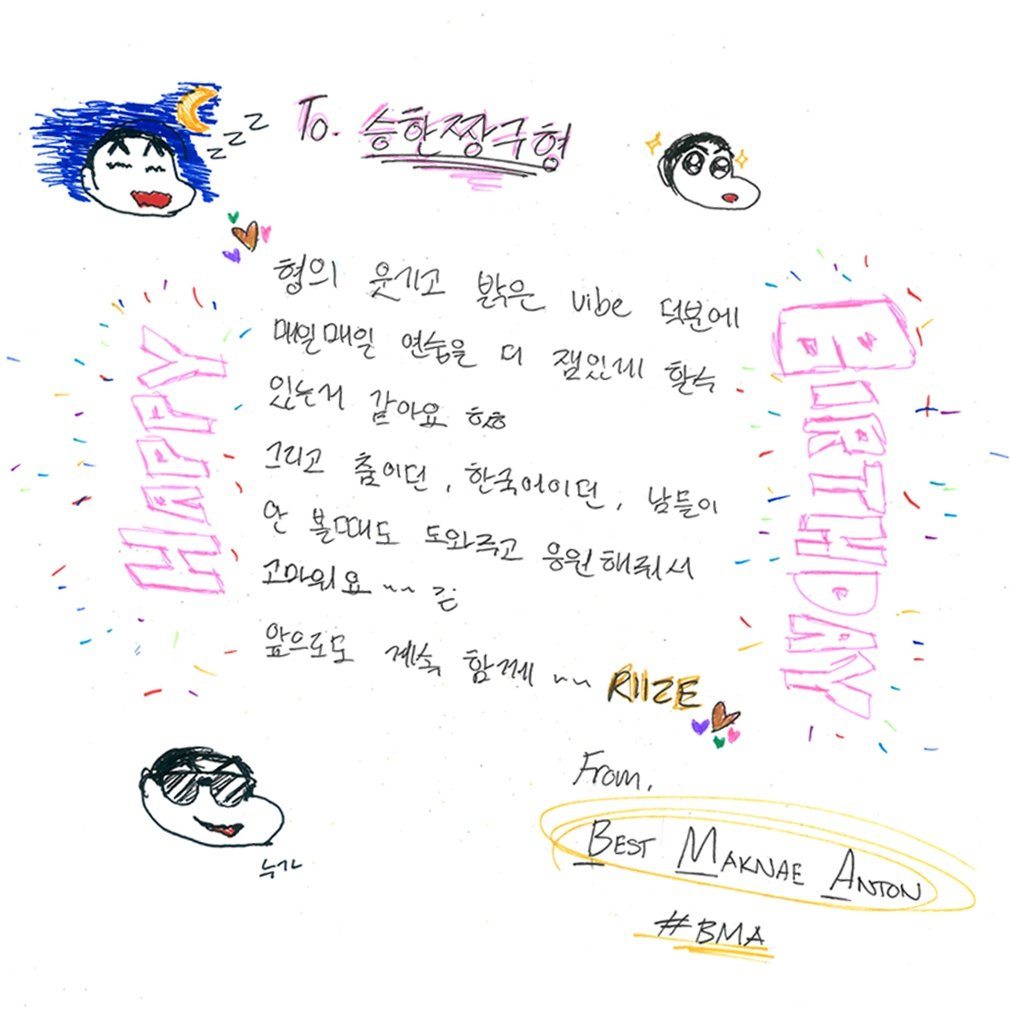 To. 승한짱구형
형의 웃기고 밝은 vibe 덕분에
매일매일 연습을 더 잼있게 할수
있는거 같아요 ㅎㅎ
그리고 춤이던, 한국어이던, 남들이
안 볼때도 도와주고 응원해줘서
고마워요~~
앞으로도 계속 함께 ~~ RIIZE
HAPPY
BIRTHDAY
zzz
From,
BEST MAKNAE ANTON
#BMA